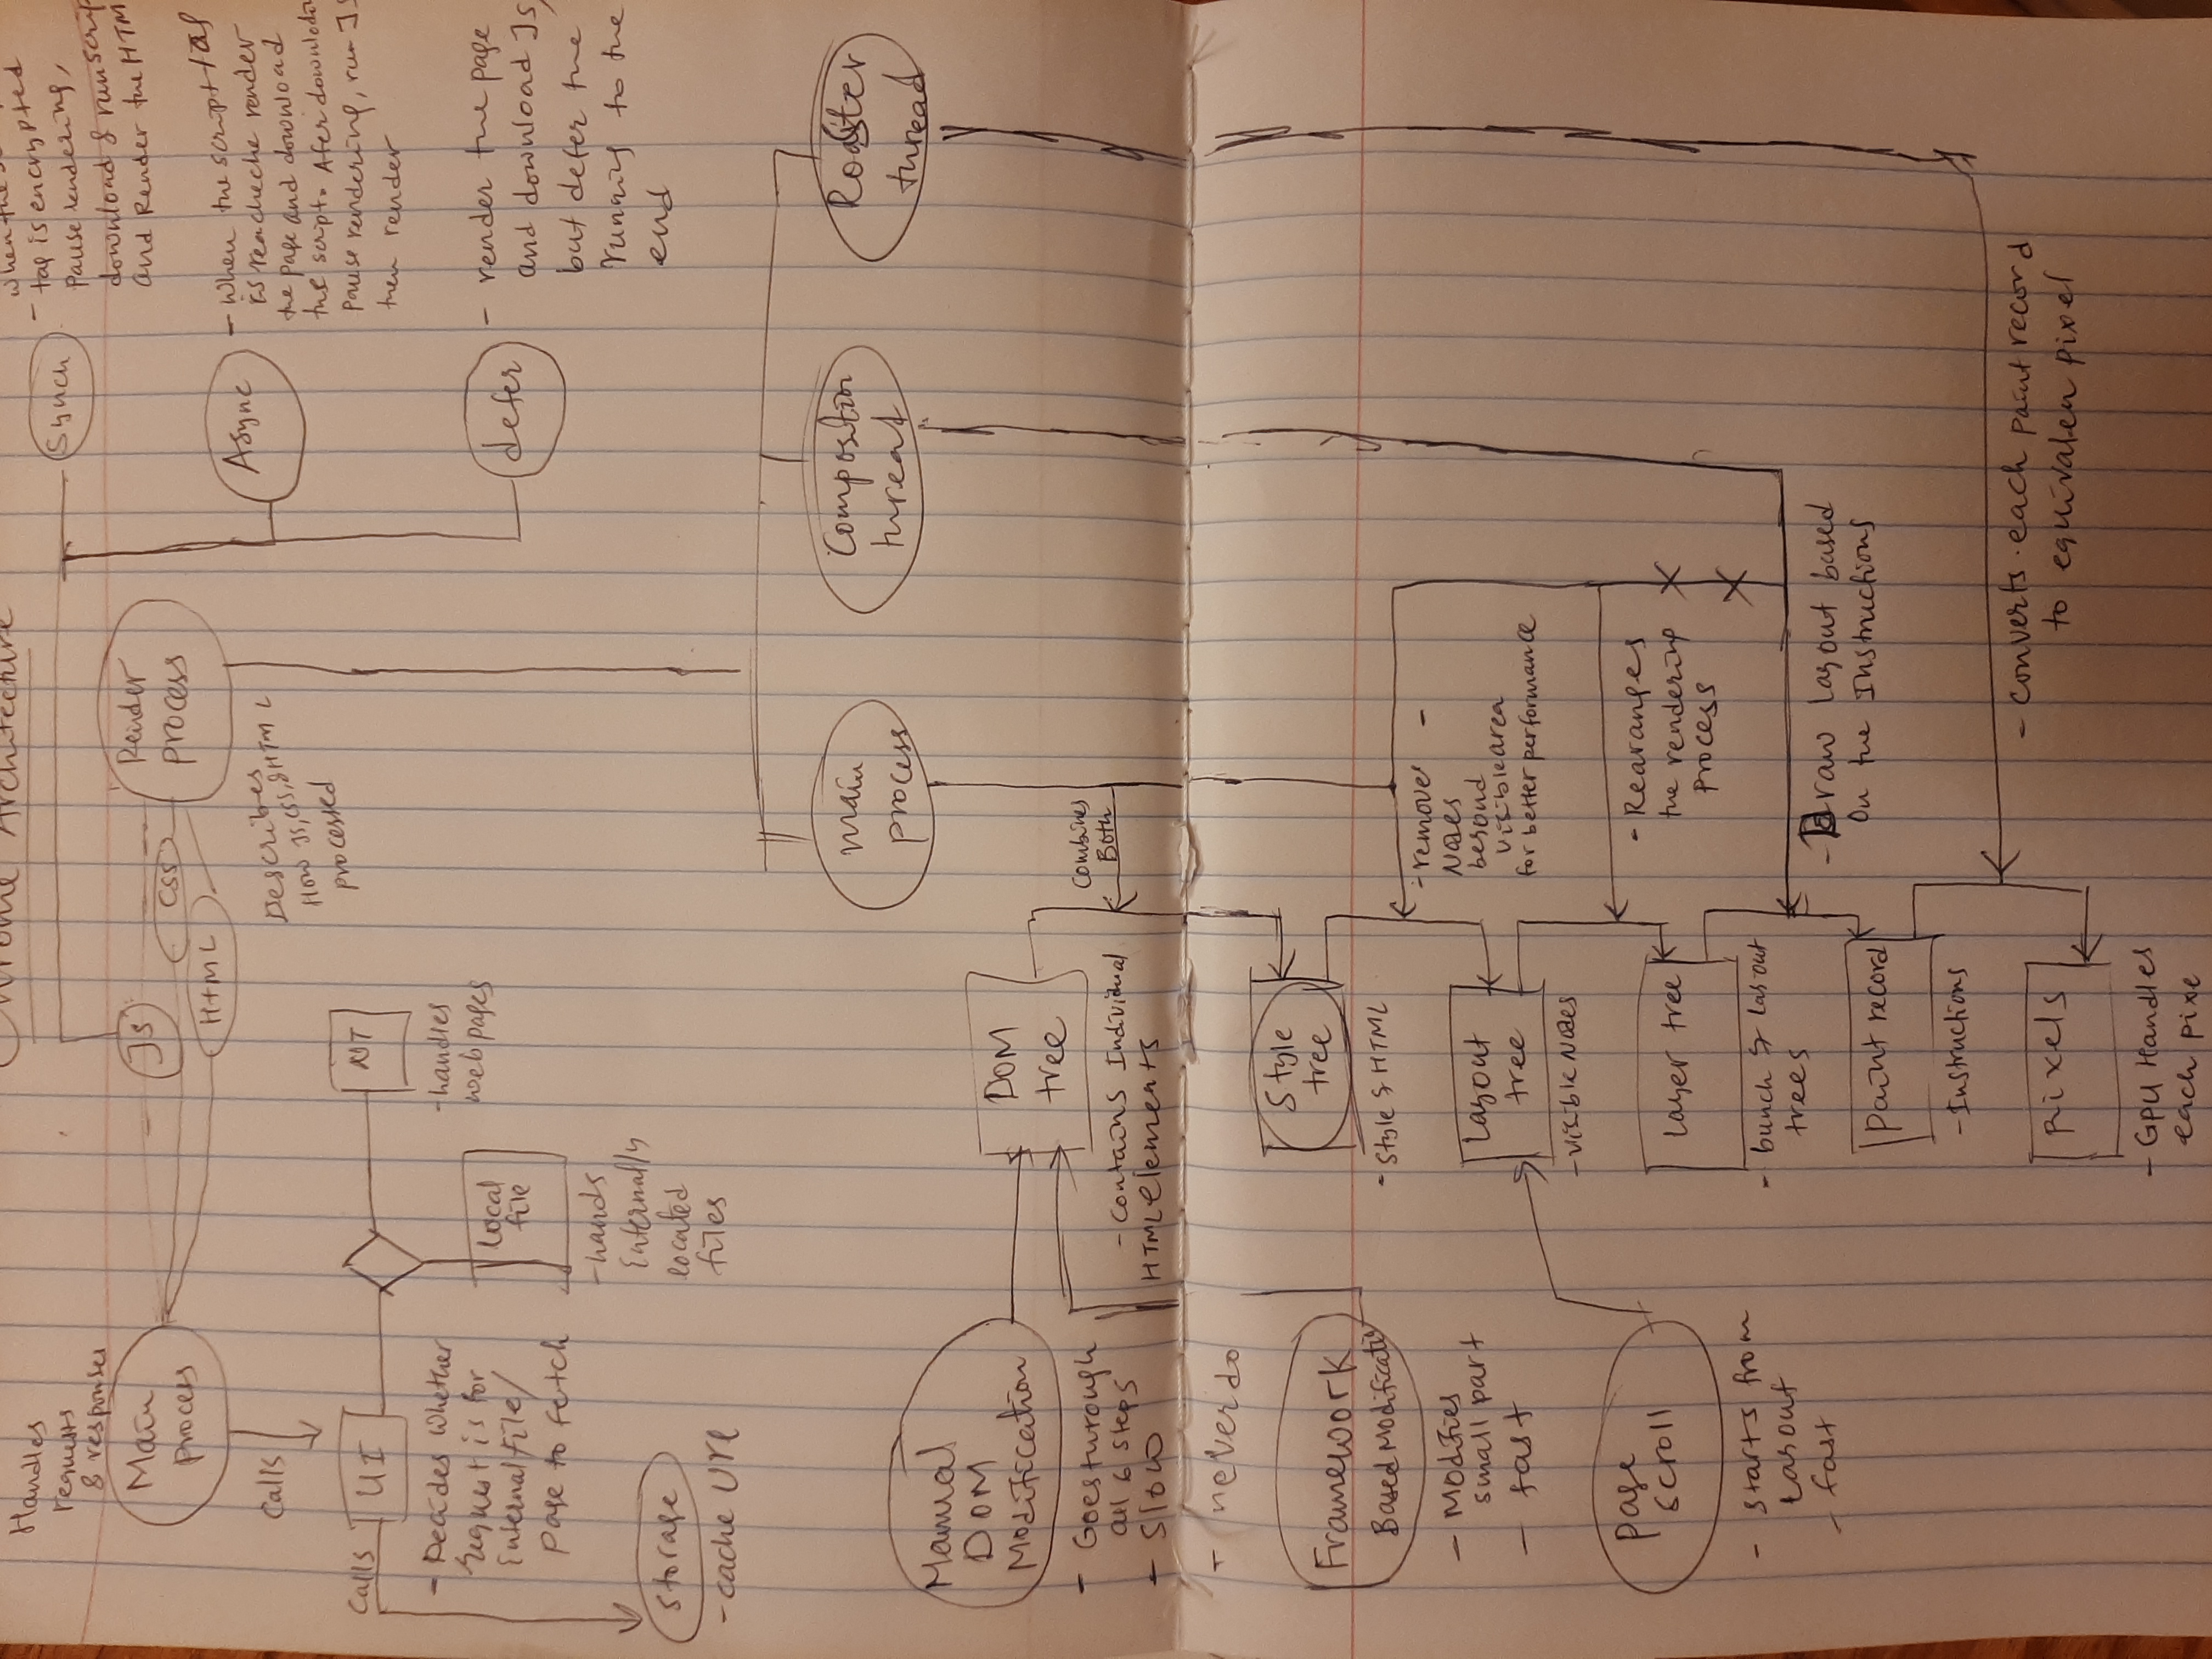 Chrome Architecture
Handles
requests
& responses
Main
process
JS
CSS
HTML
Render
process
Describes
How JS, CSS, & HTML
processed
Synch
tag is encrypted
Pause rendering,
download & run scrip
and Render the HTM
Async
- When the script tag
render
the page and download
the script. Afer downlodin
pause rendering, run JS
then render
defer
- render the page
and download JS,
but defer the
running to the
end
calls
calls
UI
- Decides whether
request is for
Internal File/
page to fetch
Local
file
- hands
internally
located
files
NT
- handles
web pages
storage
- cache url
main
process
Composition
threat
Roaster
thread
Manual
DOM
Modification
- Goes through
all 6 steps
- Slow
- never do
DOM
tree
- contains Individual
HTML elements
Combines
Both
Framework
Based Modificatio
- Modifies
small part
- fast
Style
tree
- Style & HTML
- remover -
Nodes
beyond
visible area
for better performance
Layout
tree
- visible Nodes
page
scroll
- starts from
Layout
- fast
Layer tree
- bunch of Layout
trees
- Rearanges
the rendering
process
- Draw layout based
On the Instructions
paint record
- Instructions
- converts each paint record
to equivalen pixel
pixels
- GPU Handles
each pixe